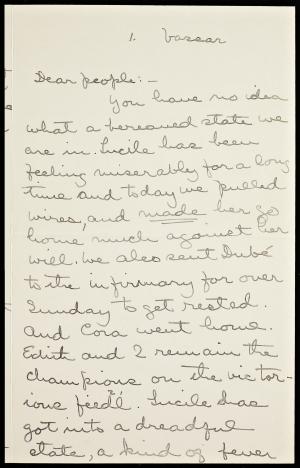 1. Vassar
Dear people: -
You have no idea
what a bereaved state we
are in. Lucile has been
feeling miserably for a long
time and today we pulled
wires, and made her go
home much against her
will. We also sent Dubé
to the infirmary for over
Sunday to get rested.
And Cora went home.
Edith and I remain the
champions on the victor-
ious field. Lucile has
got into a dreadful
state, a kind of fever